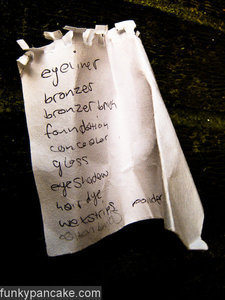 eyeliner
bronzer
bronzer brush
foundation
concealor
gloss
eyeshadow
hair dye
wetstrips powder
funkypancake.com